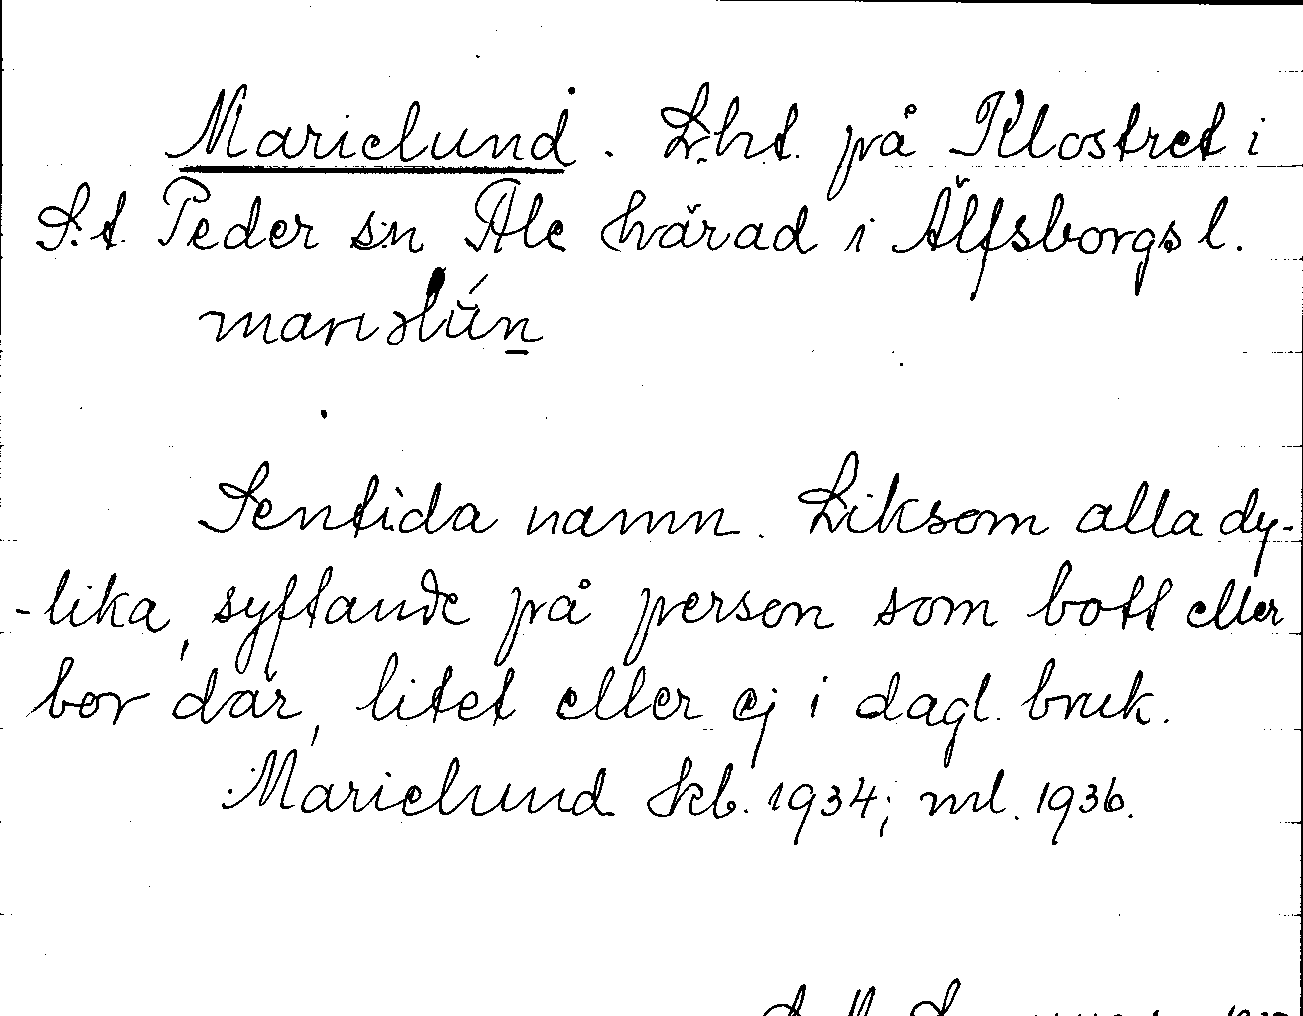 Marielund. L:ht. på Klostret i
S:t. Peder s:n Ale härad i Älfsborgs l.
Sentida namn. Liksom alla dy-
-lika, syftande på person som bott eller
bor där, litet eller ej i dagl. bruk.
Marielund Skb. 1934; ml. 1936.